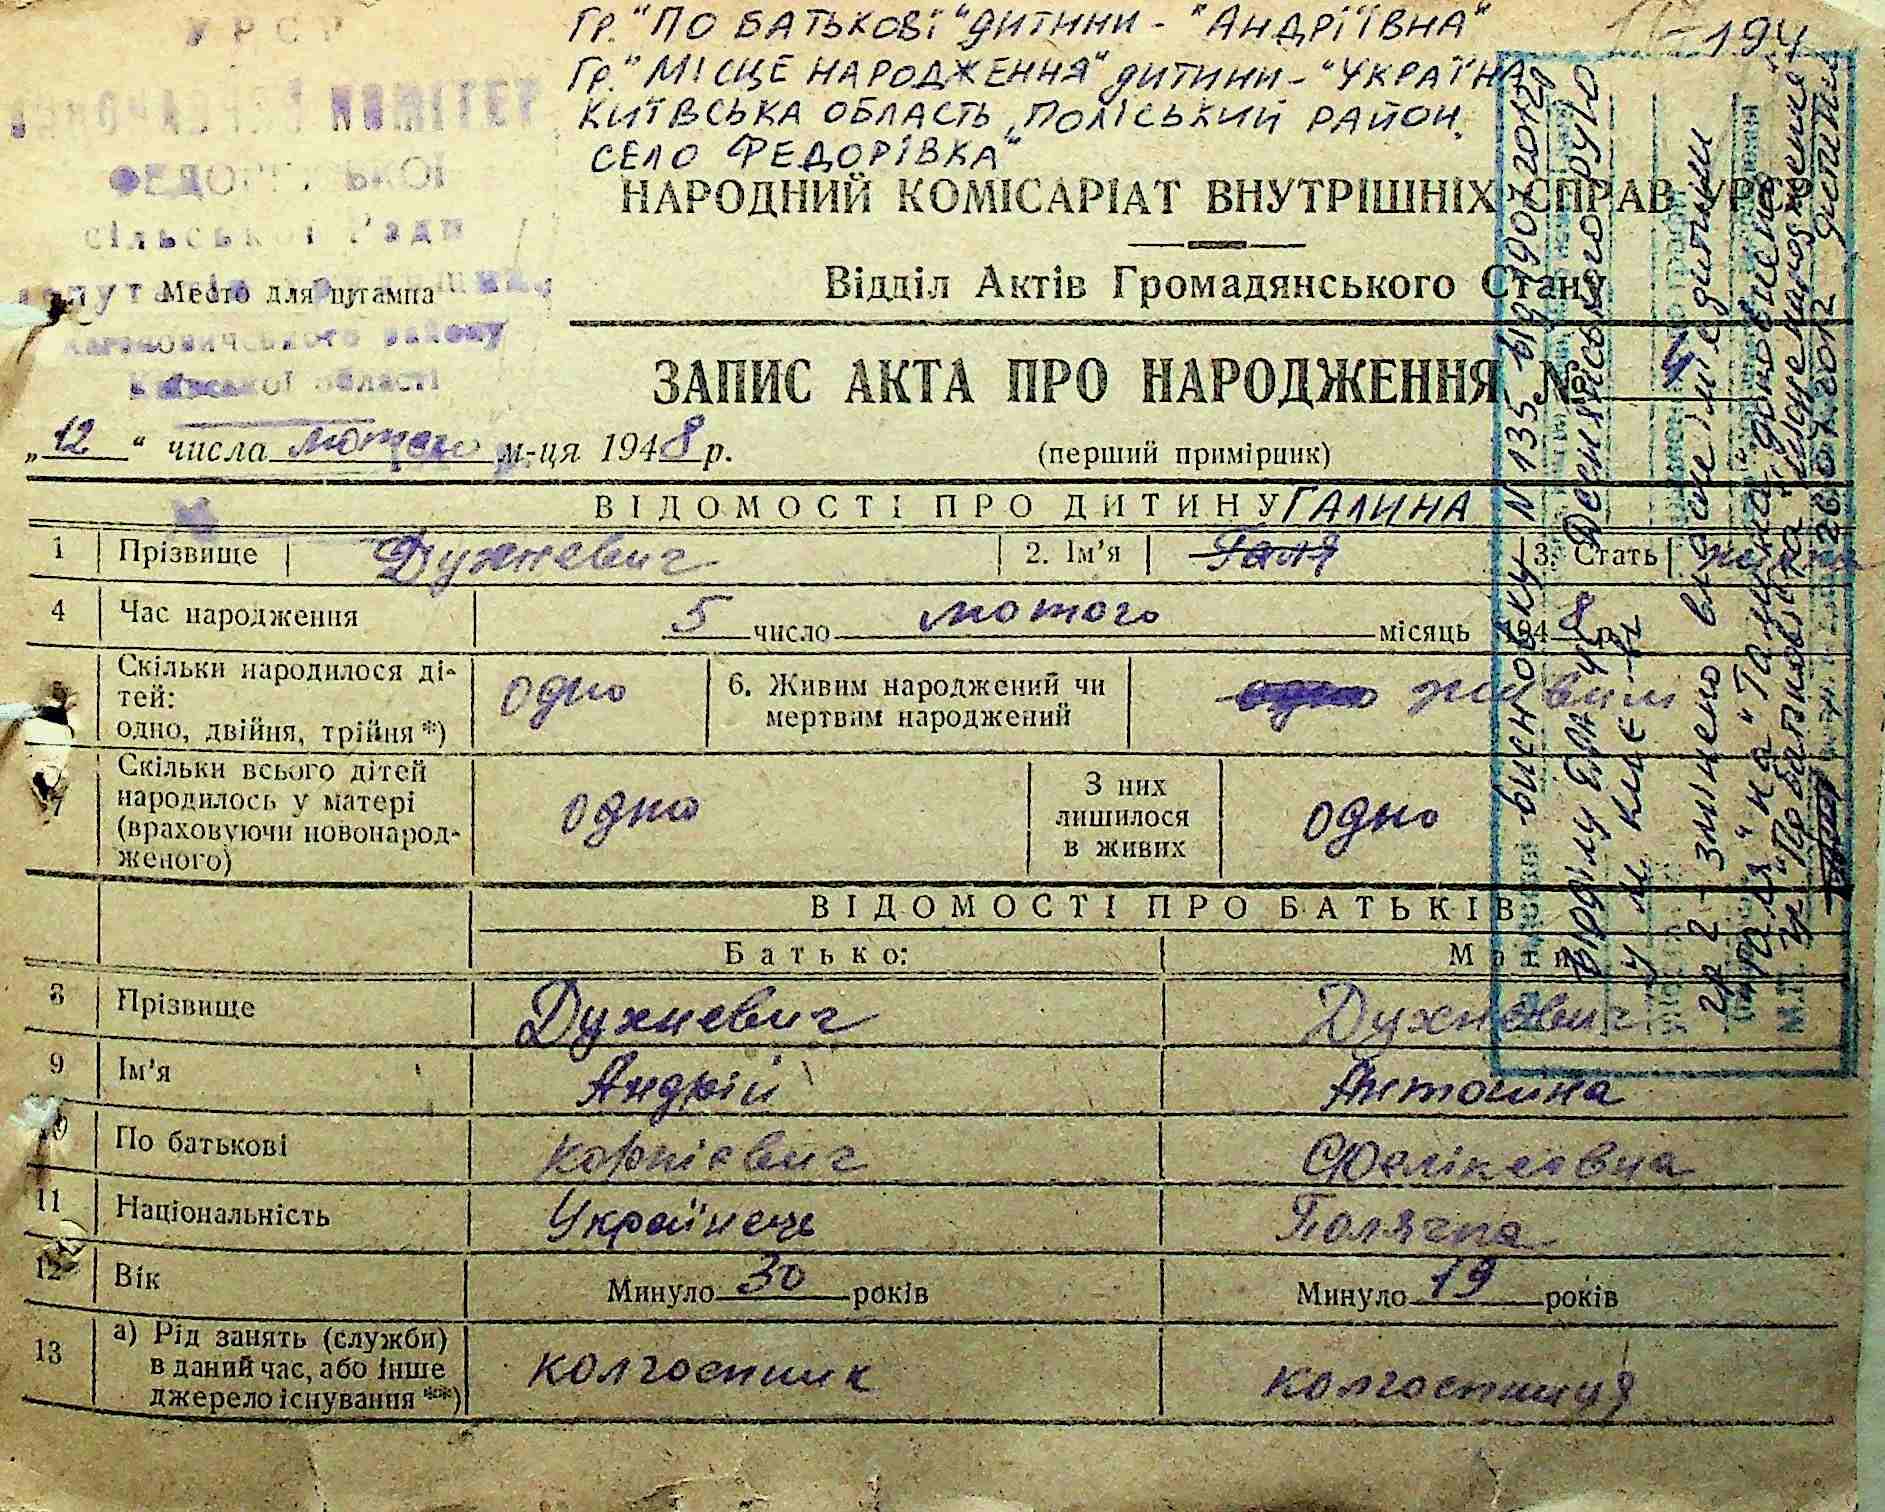 Гр. "ПО БАТЬКОВІ" ДИТИНИ - "АНДРІЇВНА"
Гр. "МІСЦЕ НАРОДЖЕННЯ" ДИТИНИ - "УКРАЇНА
КИЇВСЬКА ОБЛАСТЬ, ПОЛІСЬКИЙ РАЙОН,
СЕЛО ФЕДОРІВКА"
194
УРСР
КОМІТЕТ
сільської Ради
району
Київської області
Место для штампа
НАРОДНИЙ КОМІСАРІАТ ВНУТРІШНІХ СПРАВ УРСР
Відділ Актів Громадянського Стану
ЗАПИС АКТА ПРО НАРОДЖЕННЯ № 4
(перший примірник)
„12“ числа лютого м-ця 1948 р.
ВІДОМОСТІ ПРО ДИТИНУ ГАЛИНА
1 Прізвище Духневич 2. Ім’я Галя 3. Стать
4 Час народження 5 число лютого місяць 1948 р.
5 Скільки народилося ді-
тей:
одно, двійня, трійня *) одно 6. Живим народжений чи
мертвим народжений одно живим
7 Скільки всього дітей
народилось у матері
(враховуючи новонарод-
женого) одно З них
лишилося
в живих одно
ВІДОМОСТІ ПРО БАТЬКІВ
Батько: Мати
8 Прізвище Духневич Духневич
9 Ім’я Андрій Антоніна
10 По батькові Корнієвич Феліксовна
11 Національність Українець Полячка
12 Вік Минуло 30 років Минуло 19 років
13 а) Рід занять (служби)
в даний час, або інше
джерело існування **) колгоспник колгоспниця
висновку N 135 від 19.07.2012р
відділу Деснянського РУЮ
у м. Києві
гр 2 - змінено ім'я дитини
"Галя" на "Галина", доповнено
гр "По батькові" та "місце народження"
26.07.2012 дитини